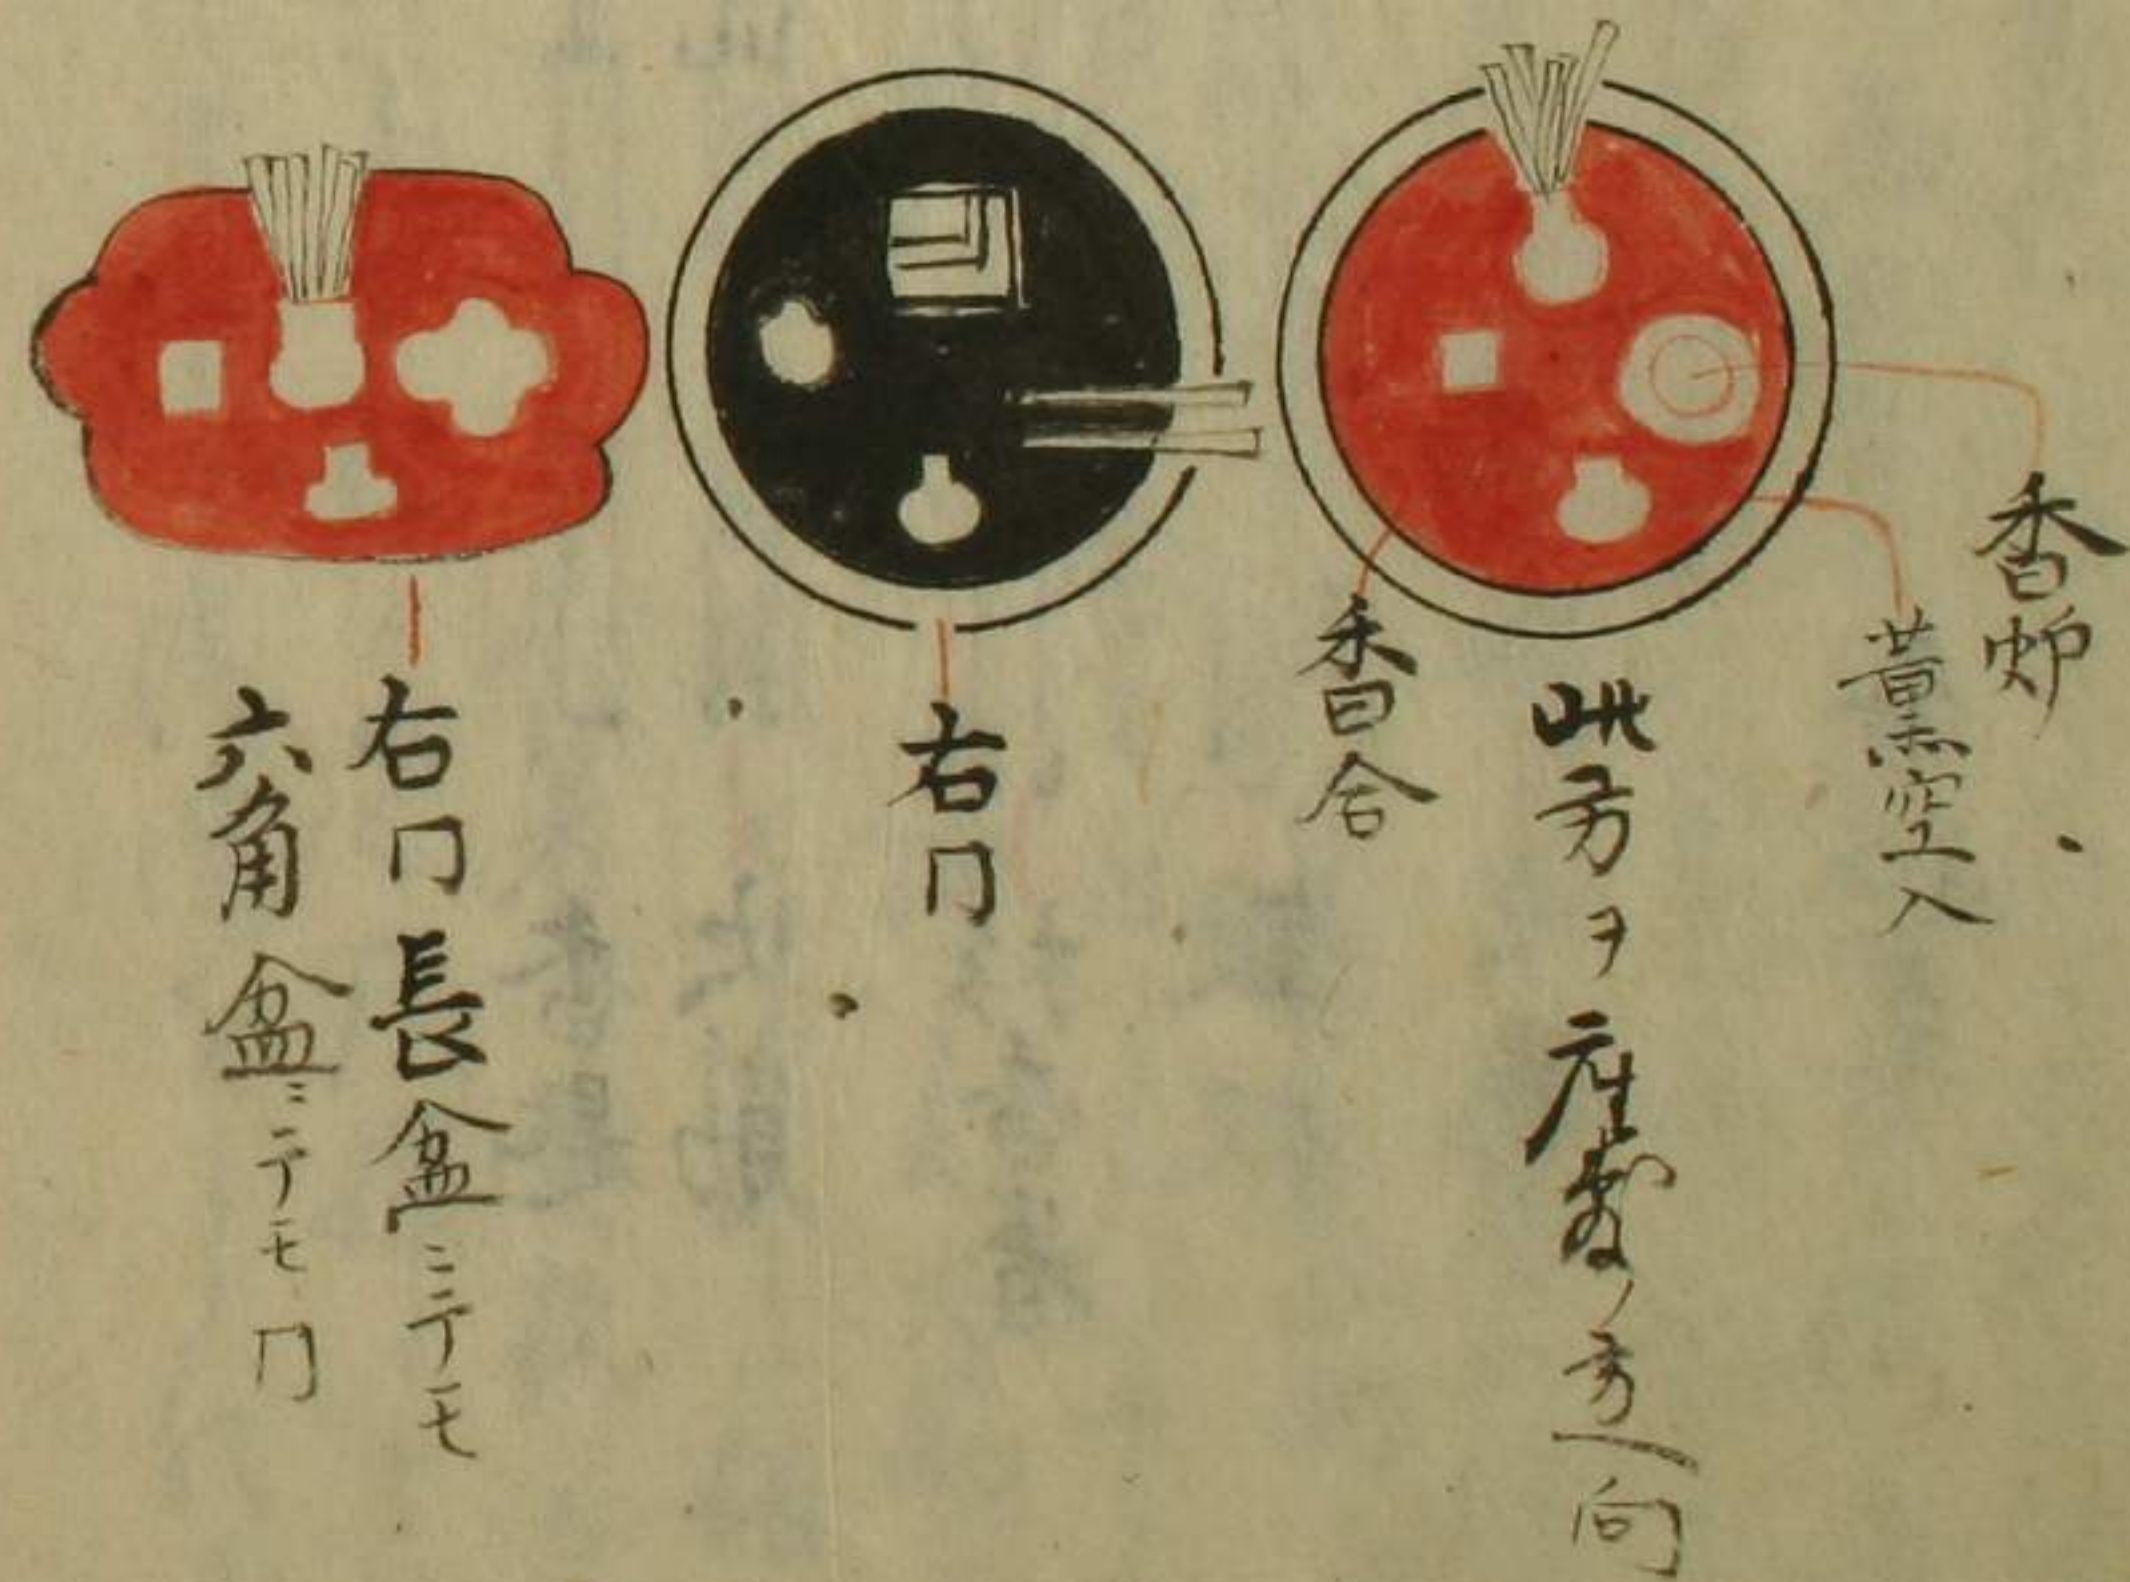 香炉
薫空入
此方ヲ座敷ノ方ヘ向
香合
右冂
右冂長盆ニテモ
六角盆ニテモ冂